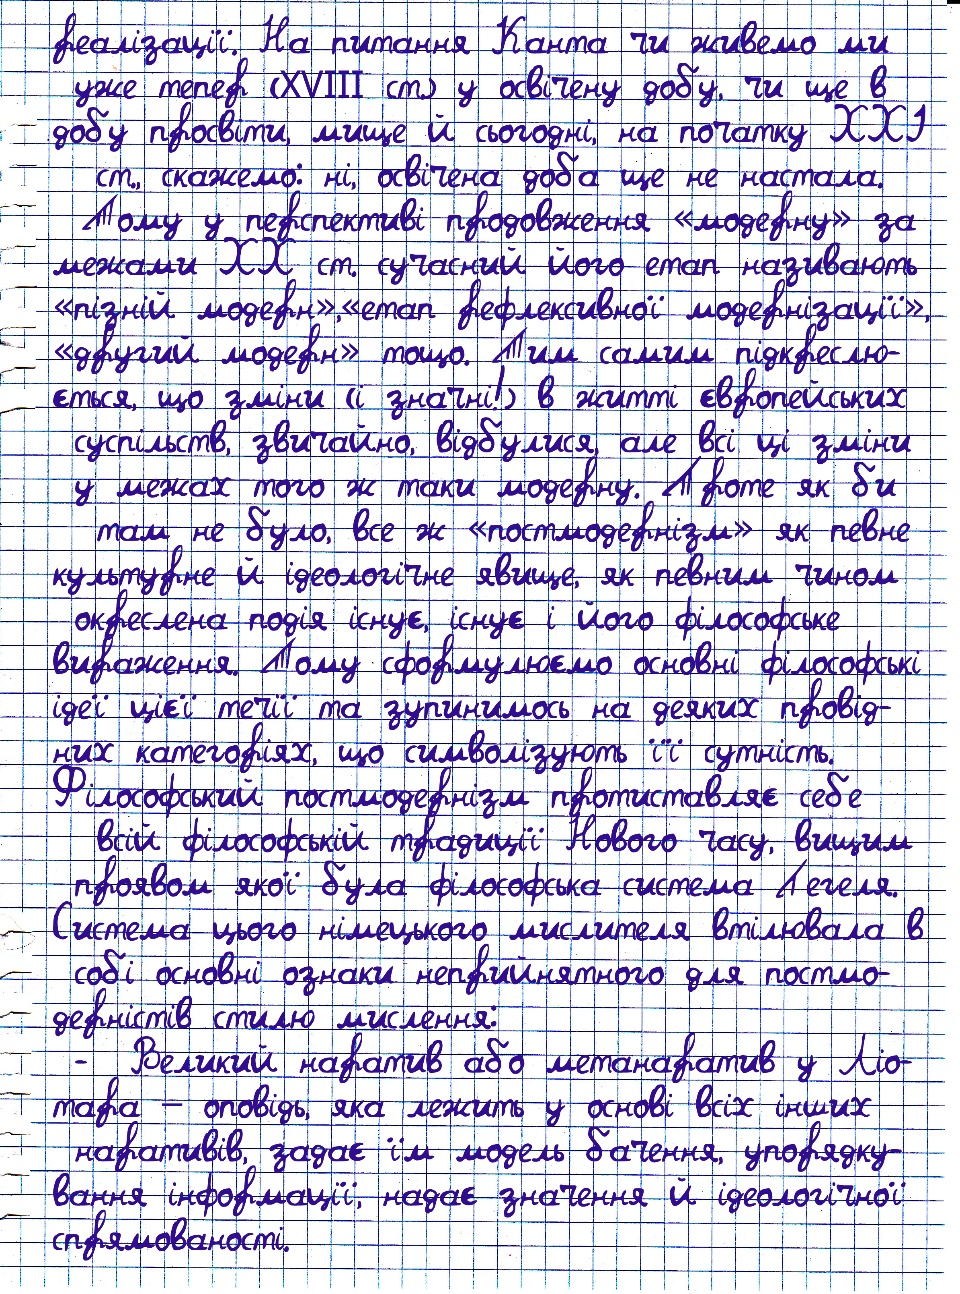 реалізації. На питання Канта чи живемо ми
уже тепер (XVIII ст.) у освічену добу, чи ще в
добу просвіти, мище й сьогодні, на початку XXI
ст., скажемо: ні, освічена доба ще не настала.
Тому у перспективі продовження «модерну» за
межами XX ст. сучасний його етап називають
«пізній модерн»,«етап рефлексивної модернізації»,
«другий модерн» тощо. Тим самим підкреслю-
ється, що зміни (і значні!) в житті європейських
суспільств, звичайно, відбулися, але всі ці зміни
у межах того ж таки модерну. Проте як би
там не було, все ж «постмодернізм» як певне
культурне й ідеологічне явище, як певним чином
окреслена подія існує, існує і його філософське
вираження. Тому сформулюємо основні філософські
ідеї цієї течії та зупинимось на деяких провід-
них категоріях, що символізують її сутність.
Філософський постмодернізм протиставляє себе
всій філософській традиції Нового часу, вищим
проявом якої була філософська система Гегеля.
Система цього німецького мислителя втілювала в
собі основні ознаки неприйнятного для постмо-
дерністів стилю мислення:
- Великий наратив або метанаратив у Ліо-
тара – оповідь, яка лежить у основі всіх інших
наративів, задає їм модель бачення, упорядку-
вання інформації, надає значення й ідеологічної
спрямованості.